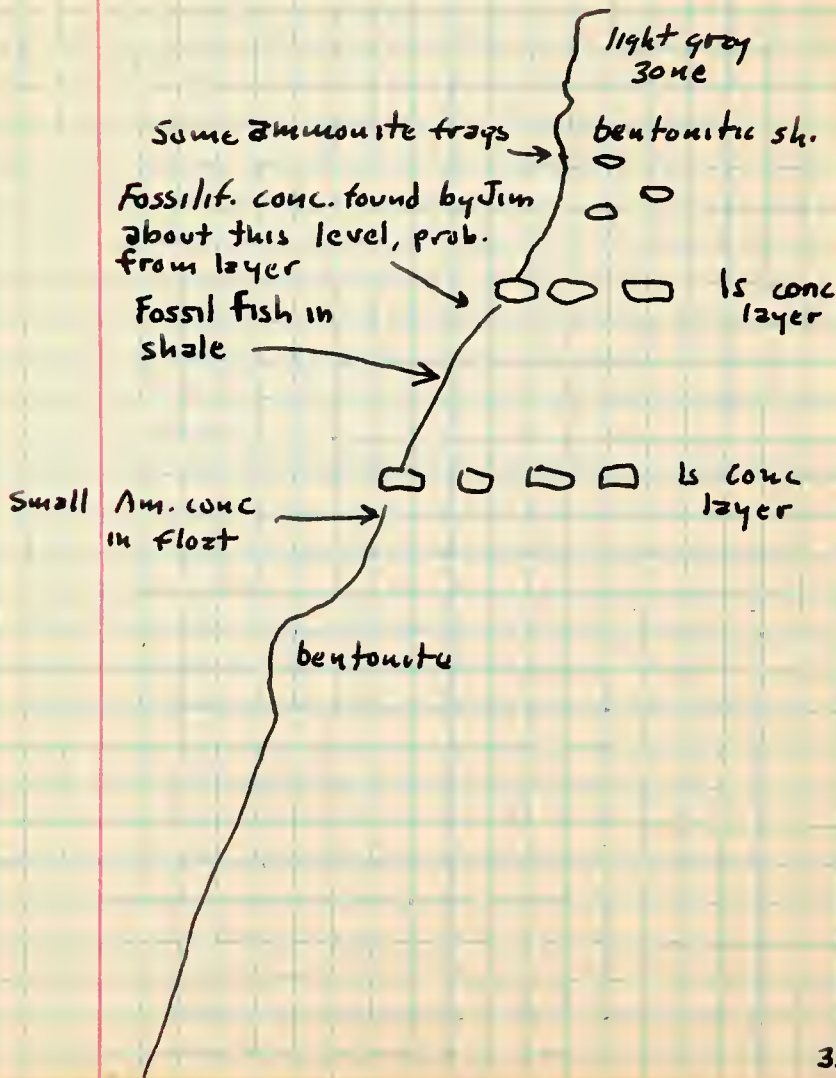 light gray
zone
Some ammonite frags
bentonitic sh.
Fossilif. conc. found by Jim
about this level, prob.
from layer
ls conc
layer
Fossil fish in
shale
ls conc
layer
Small Am. conc
in float
bentonite